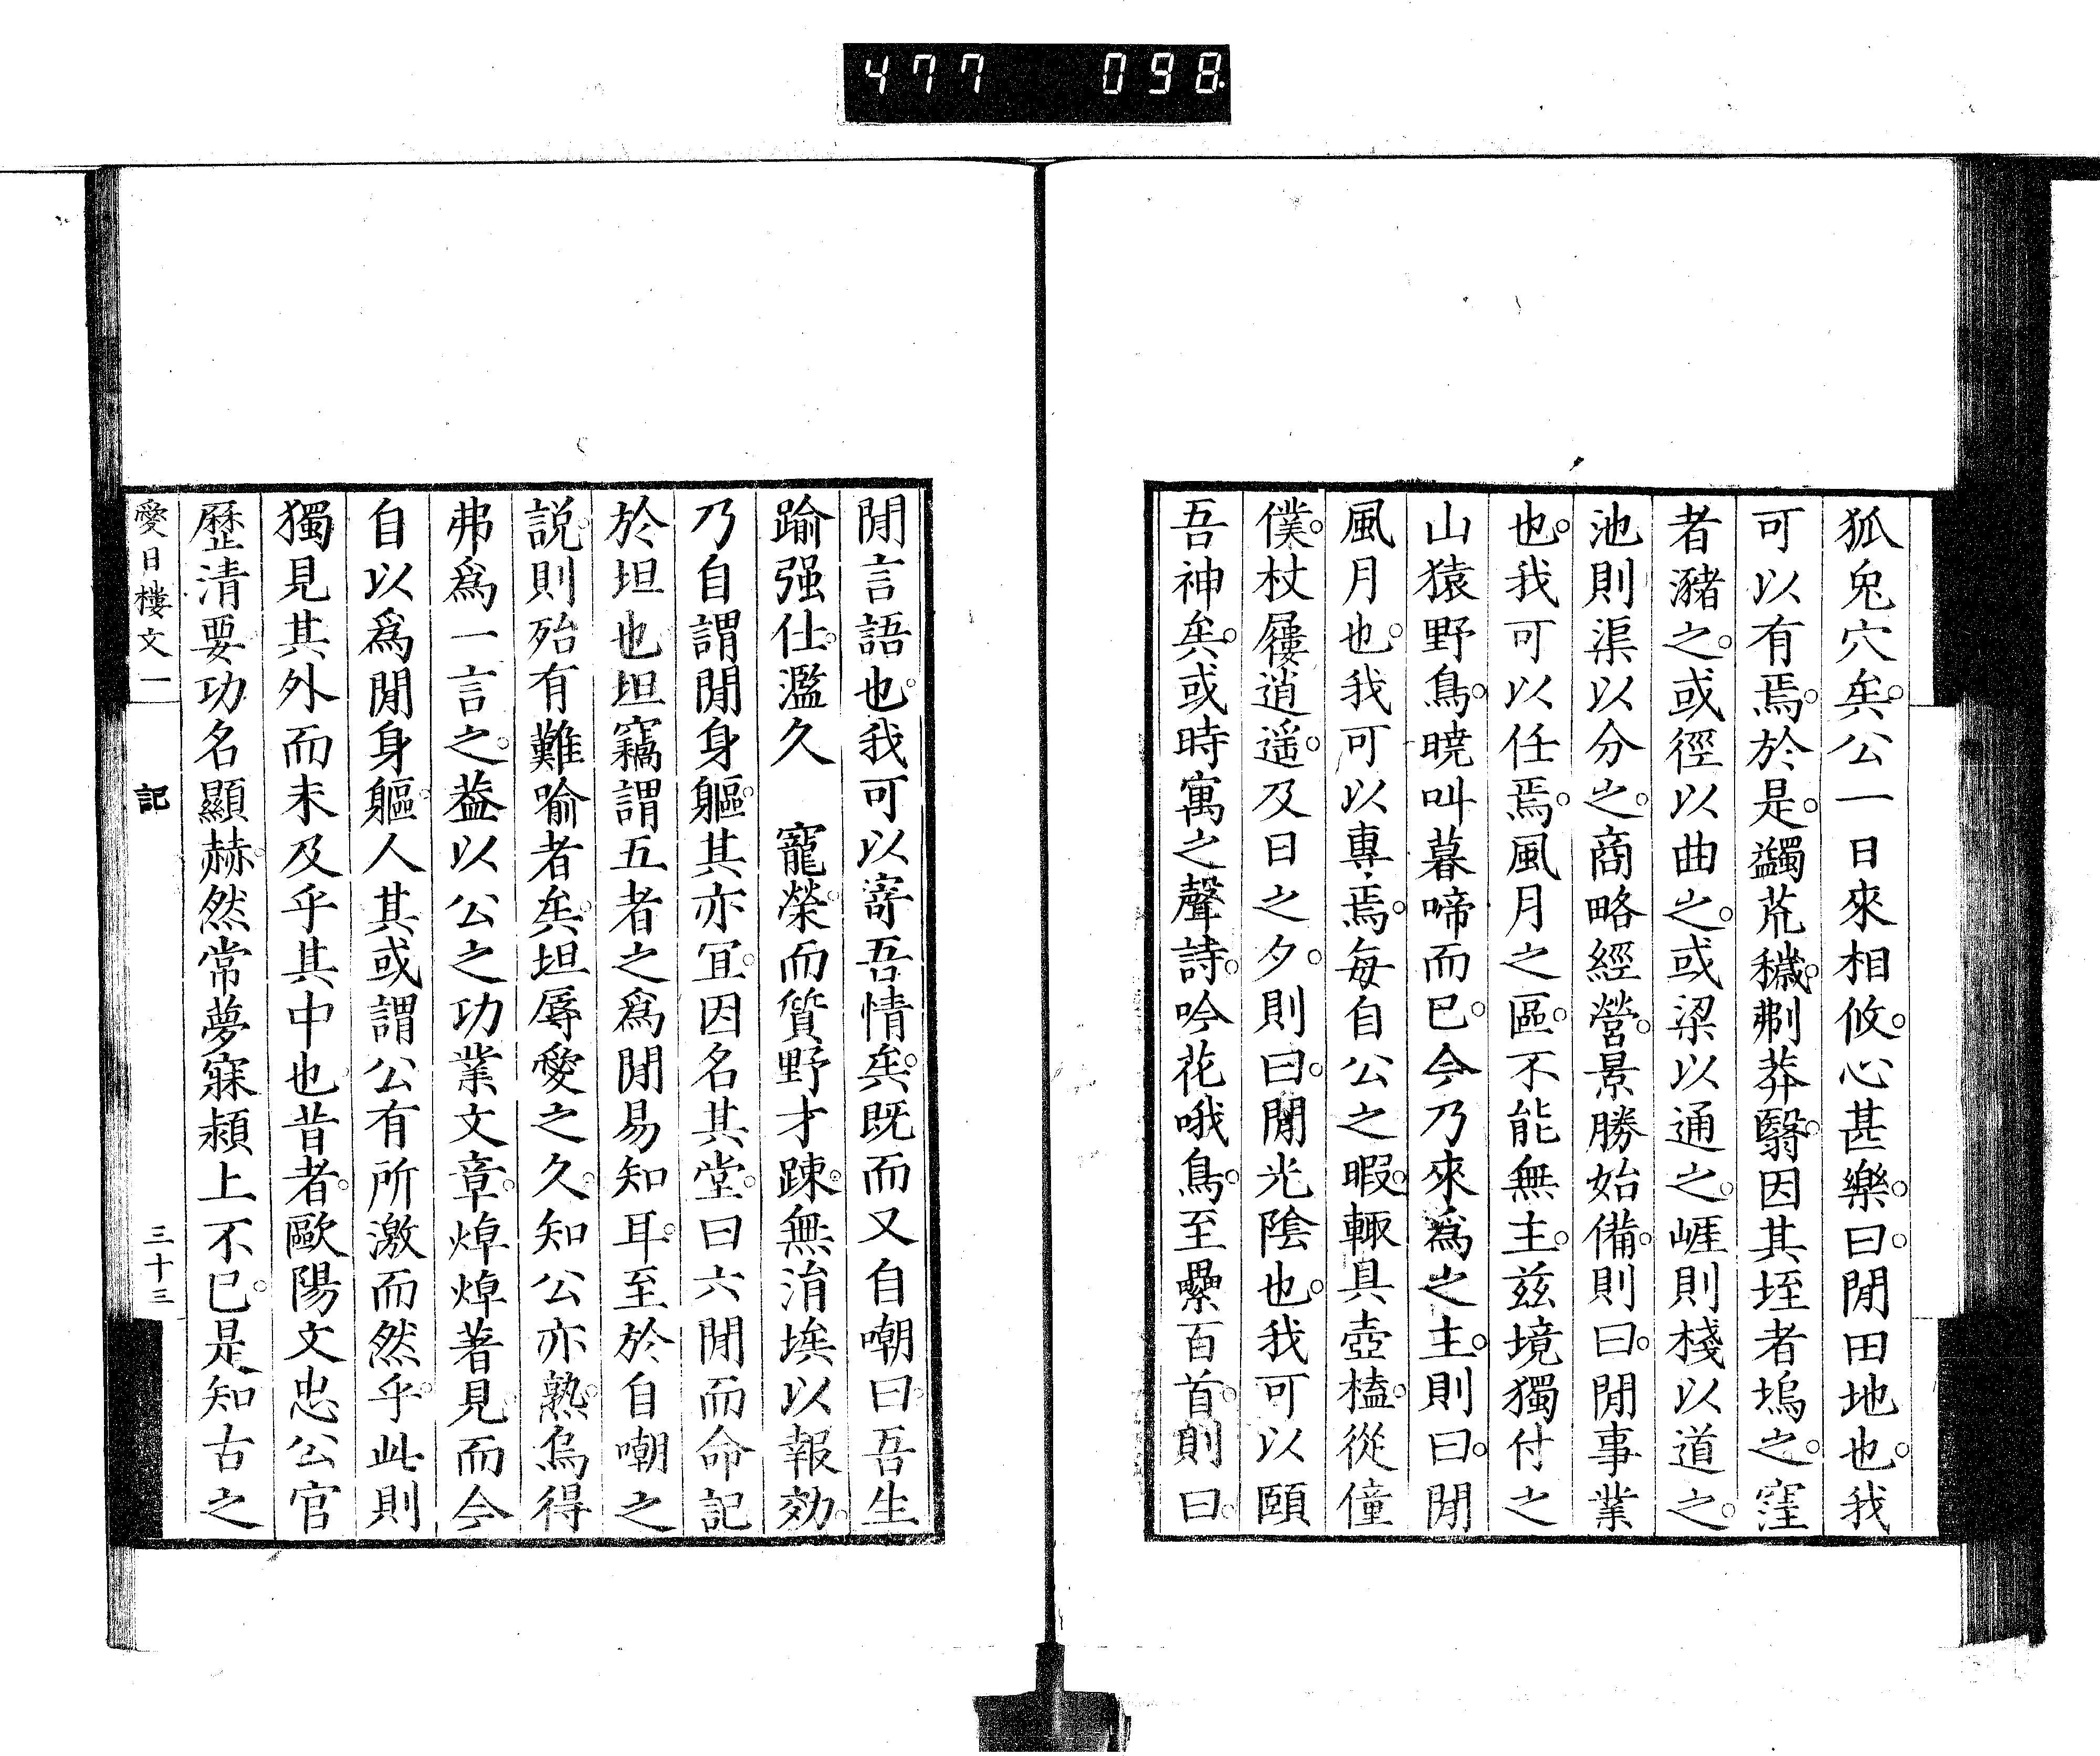 477 098
狐兔穴矣。公一日來相攸。心甚樂。曰。閒田地也。我
可以有焉。於是。蠲荒穢。剃莽翳。因其垤者塢之。窪
者瀦之。或徑以曲之。或梁以通之。崕則棧以道之。
池則渠以分之。商略經營。景勝始備。則曰。閒事業
也。我可以任焉。風月之區。不能無主。兹境獨付之
山猿野鳥。曉叫暮啼而已。今乃來爲之主。則曰。閒
風月也。我可以專焉。每自公之暇。輒具壺榼。從僮
僕。杖屨逍遥。及日之夕。則曰。閒光陰也。我可以頤
吾神矣。或時寓之聲詩。吟花哦鳥。至纍百首。則曰。
閒言語也。我可以寄吾情矣。既而又自嘲曰。吾生
踰强仕。濫久　寵榮。而質野才踈。無涓埃以報効。
乃自謂閒身軀。其亦宜。因名其堂。曰六閒而命記
於坦也。坦竊謂五者之爲閒易知耳。至於自嘲之
説。則殆有難喻者矣。坦辱愛之久。知公亦熟。烏得
弗爲一言之。葢以公之功業文章。焯焯著見。而今
自以爲閒身軀。人其或謂公有所激而然乎。此則
獨見其外而未及乎其中也。昔者。歐陽文忠公官
歷清要。功名顯赫。然常夢寐潁上不已。是知古之
愛日樓文一　記　三十三